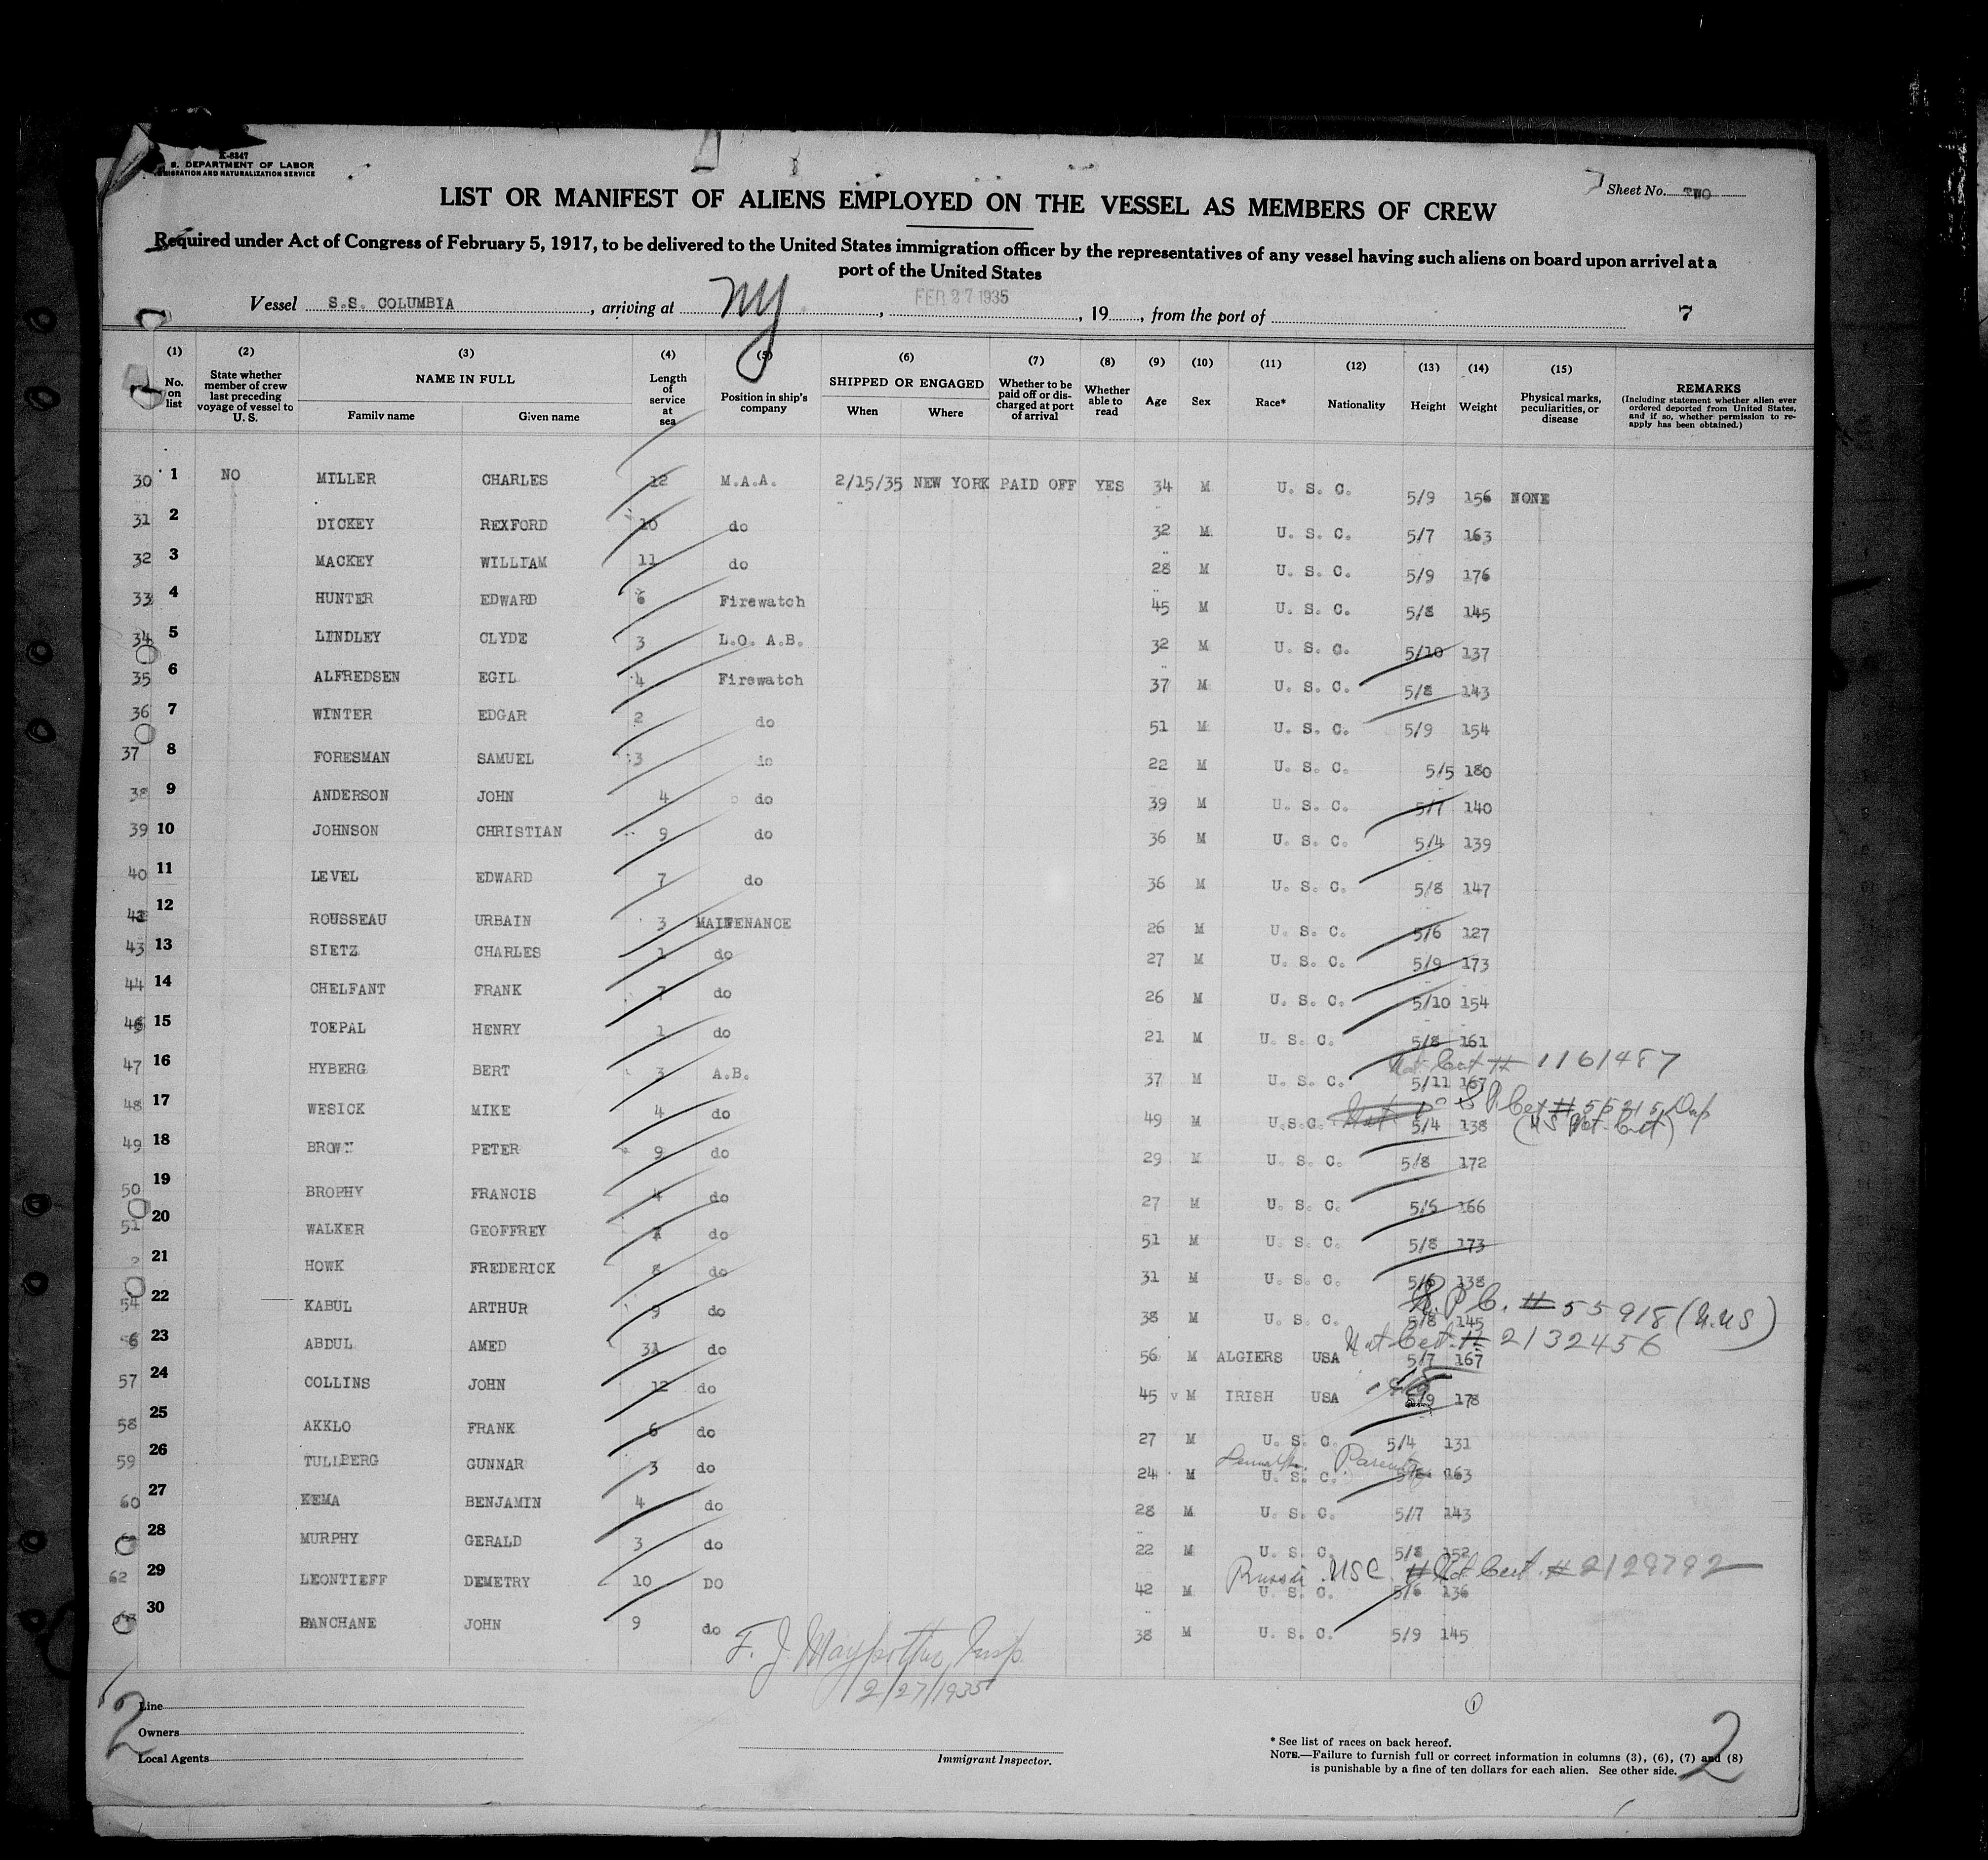 K-8347
S. DEPARTMENT OF LABOR
IMMIGRATION AND NATURALIZATION SERVICE
Sheet No. TWO
LIST OR MANIFEST OF ALIENS EMPLOYED ON THE VESSEL AS MEMBERS OF CREW
Required under Act of Congress of February 5, 1917, to be delivered to the United States immigration officer by the representatives of any vessel having such aliens on board upon arrival at a
port of the United States
Vessel S.S. COLUMBIA, arriving at NY, FEB 27 1935, 19, from the port of 7
(1) No. on list (2) State whether member of crew last preceding voyage of vessel to U. S. (3) NAME IN FULL Family name Given name (4) Length of service at sea (5) Position in ship's company (6) SHIPPED OR ENGAGED When Where (7) Whether to be paid off or discharged at port of arrival (8) Whether able to read (9) Age (10) Sex (11) Race* (12) Nationality (13) Height (14) Weight (15) Physical marks, peculiarities, or disease REMARKS (Including statement whether alien ever ordered deported from United States, and if so, whether permission to re-apply has been obtained.)
30 1 NO MILLER CHARLES 12 M.A.A. 2/15/35 NEW YORK PAID OFF YES 34 M U. S. C. 5/9 156 NONE
31 2 DICKEY REXFORD 10 do 32 M U. S. C. 5/7 163
32 3 MACKEY WILLIAM 11 do 28 M U. S. C. 5/9 176
33 4 HUNTER EDWARD 6 Firewatch 45 M U. S. C. 5/8 145
34 5 LINDLEY CLYDE 3 L.O. A.B. 32 M U. S. C. 5/10 137
35 6 ALFREDSEN EGIL 4 Firewatch 37 M U. S. C. 5/8 143
36 7 WINTER EDGAR 2 do 51 M U. S. C. 5/9 154
37 8 FORESMAN SAMUEL 3 do 22 M U. S. C. 5/5 180
38 9 ANDERSON JOHN 4 do 39 M U. S. C. 5/7 140
39 10 JOHNSON CHRISTIAN 9 do 36 M U. S. C. 5/4 139
40 11 LEVEL EDWARD 7 do 36 M U. S. C. 5/8 147
42 12 ROUSSEAU URBAIN 3 MAINENANCE 26 M U. S. C. 5/6 127
43 13 SIETZ CHARLES 1 do 27 M U. S. C. 5/9 173
44 14 CHELFANT FRANK 7 do 26 M U. S. C. 5/10 154
46 15 TOEPAL HENRY 1 do 21 M U. S. C. 5/8 161
47 16 HYBERG BERT 3 A.B. 37 M U. S. C. 5/11 167 Nat Cert # 1161487
48 17 WESICK MIKE 4 do 49 M U.S.C. 5/4 138 Cert # 55215 Dup (US Nat. Cert)
49 18 BROWN PETER 9 do 29 M U. S. C. 5/8 172
50 19 BROPHY FRANCIS 4 do 27 M U. S. C. 5/5 166
51 20 WALKER GEOFFREY do 51 M U. S. C. 5/8 173
21 HOWK FREDERICK 8 do 31 M U. S. C. 5/6 138
54 22 KABUL ARTHUR 9 do 38 M U. S. C. 5/8 145 S.P.C. # 55918 (N.US)
56 23 ABDUL AMED 31 do 56 M ALGIERS USA 5/7 167 Nat Cert # 2132456
57 24 COLLINS JOHN 12 do 45 v M IRISH USA 5/9 178
58 25 AKKLO FRANK 6 do 27 M U. S. C. 5/4 131
59 26 TULLBERG GUNNAR 3 do 24 M U. S. C. 163 Parents
60 27 KEMA BENJAMIN 4 do 28 M U. S. C. 5/7 143
28 MURPHY GERALD 3 do 22 M U. S. C. 5/8 152
62 29 LEONTIEFF DEMETRY 10 DO 42 M U. S. C. 5/6 136 Russia USC # Nat Cert. # 2129792
63 30 BANCHANE JOHN 9 do 38 M U. S. C. 5/9 145
F. J. Insp.
2/27/1935
2
Line
Owners
Local Agents
Immigrant Inspector.
1
* See list of races on back hereof.
NOTE.—Failure to furnish full or correct information in columns (3), (6), (7) and (8)
is punishable by a fine of ten dollars for each alien. See other side.
2